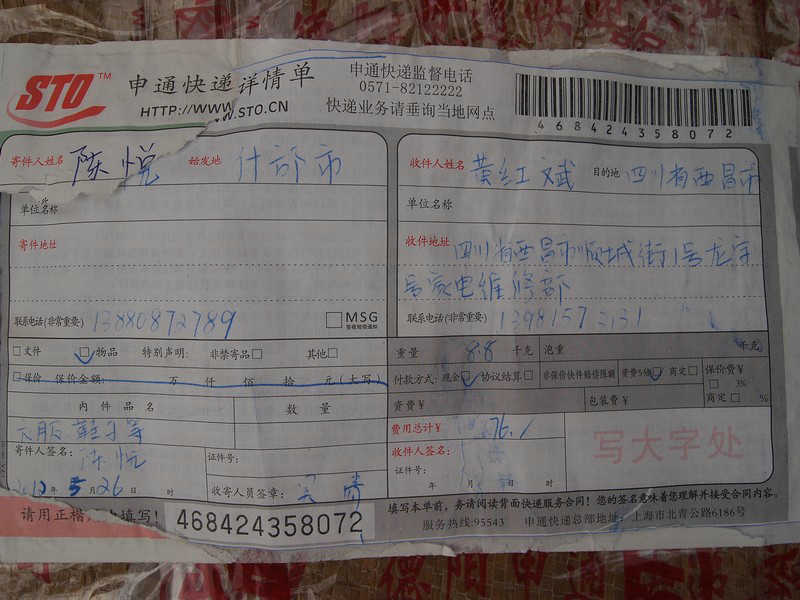 STO™ 申通快递详情单
HTTP://WWW.STO.CN
申通快递监督电话
0571-82122222
快递业务请垂询当地网点
468424358072
寄件人姓名 陈悦 始发地 什邡市
单位名称
寄件地址
联系电话(非常重要) 13880872789 □MSG
收件人姓名 黄红斌 目的地 四川省西昌市
单位名称
收件地址 四川省西昌市顺城街1号龙宇
家电维修部
联系电话(非常重要)
□文件 □物品 特别声明: 非禁寄品□ 其他□
□保价 保价金额: 万 仟 佰 拾 元(大写)
内件品名 数量
鞋子等
寄件人签名: 陈悦 证件号:
2012年5月26日 时 收寄人员签章:
重量 8.8 千克 泡重 千克
付款方式: 现金□ 协议结算□ 非保价快件赔偿限额 资费5倍□ 商定□ 保价费¥
□ 3%
资费¥ 包装费¥ 商定□ %
费用总计¥
收件人签名:
证件号:
年 月 日 时
写大字处
请用正楷 填写!
468424358072
填写本单前,务请阅读背面快递服务合同!您的签名意味着您理解并接受合同内容。
服务热线:95543 申通快递总部地址:上海市北青公路6186号
德阳申通